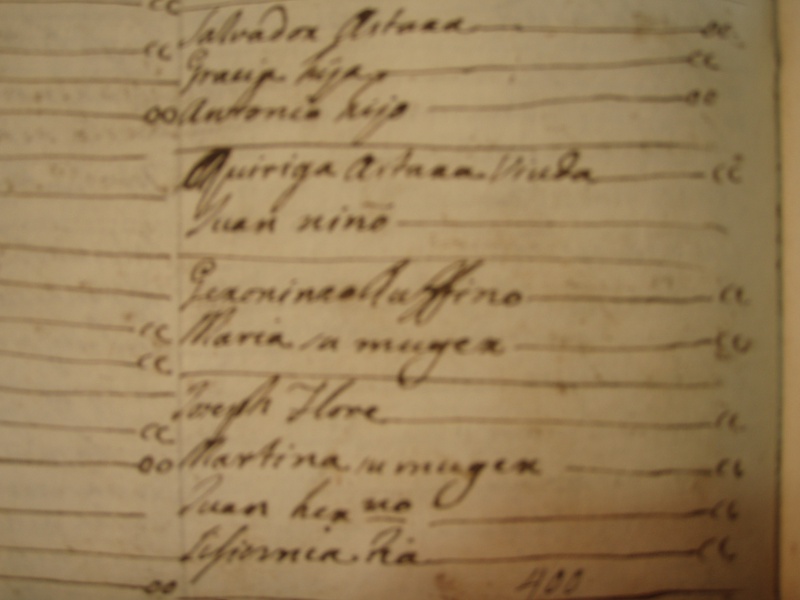 Salvador Astuaa cc
Gracia hija cc
Antonia hijo oo
Quiriga Astuaa Viuda cc
Juan niño
Geronimo Ruffino cc
Maria su muger cc
Joseph Flore cc
Martina su muger cc
Juan her no cc
cc
400